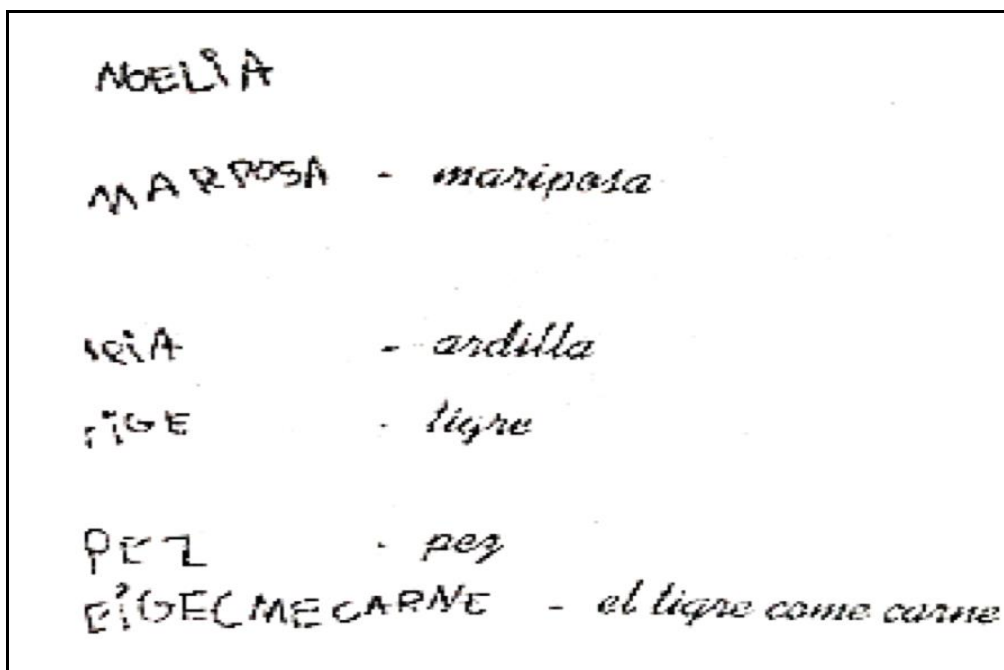 NOELiA
MARPOSA - mariposa
iRiA - ardilla
TiGE - tigre
PEZ - pez
EiGECMECARNE - el tigre come carne